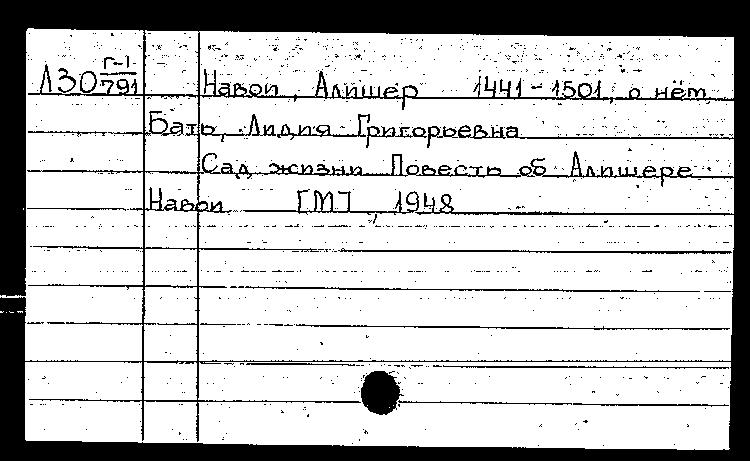 Л30 Г-1/791 Навои, Алишер 1441-1501, о нём
Бать, Лидия Григорьевна
Сад жизни Повесть об Алишере
Навои [М], 1948